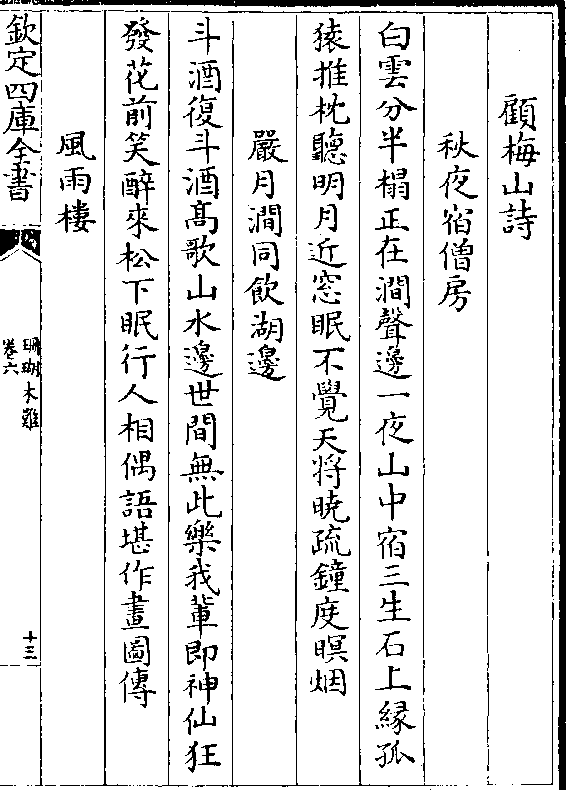 顧梅山詩
秋夜宿僧房
白雲分半榻正在澗聲邊一夜山中宿三生石上縁孤
猿推枕聽明月近窓眠不覺天将曉疏鐘度暝烟
嚴月澗同飲湖邊
斗酒復斗酒髙歌山水邊世間無此樂我輩即神仙狂
發花前笑醉來松下眠行人相偶語堪作畫圖傳
風雨樓
欽定四庫全書
珊瑚木難
卷六
十三